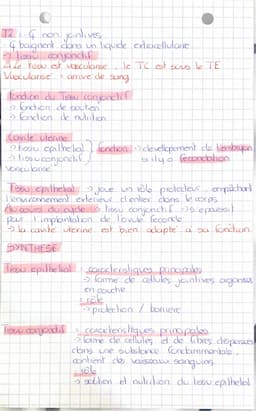 T2 : ₵ non jointives
₵ baignent dans un liquide extracellulaire
→ tissu conjonctif
→ Le tissu est vascularisé, le TC est sous le TE
Vascularisé : arrivé de sang
fonction du Tissu conjonctif
→ fonction de soutien
→ fonction de nutrition
Cavité utérine
→ tissu epithelial } fonction → développement de l'embryon
→ tissu conjonctif s'il y a fécondation
vascularisé
Tissu epithelial → joue un rôle protecteur, empêchant
l'environnement extérieur d'entrer dans le corps
Au cours du cycle → tissu conjonctif → s'épaissit
pour l'implantation de l'ovule fécondé
→ la cavité utérine est bien adapté a sa fonction
SYNTHESE
Tissu epithelial : caractéristiques principales
→ forme de cellules jointives organisés
en couche
: rôle
→ protection / barrière
Tissu conjonctif : caractéristiques principales
→ forme de cellules et de fibres dispersées
dans une substance fondammentale,
contient des vaisseaux sanguins
: rôle
→ soutien et nutrition du tissu epithelial